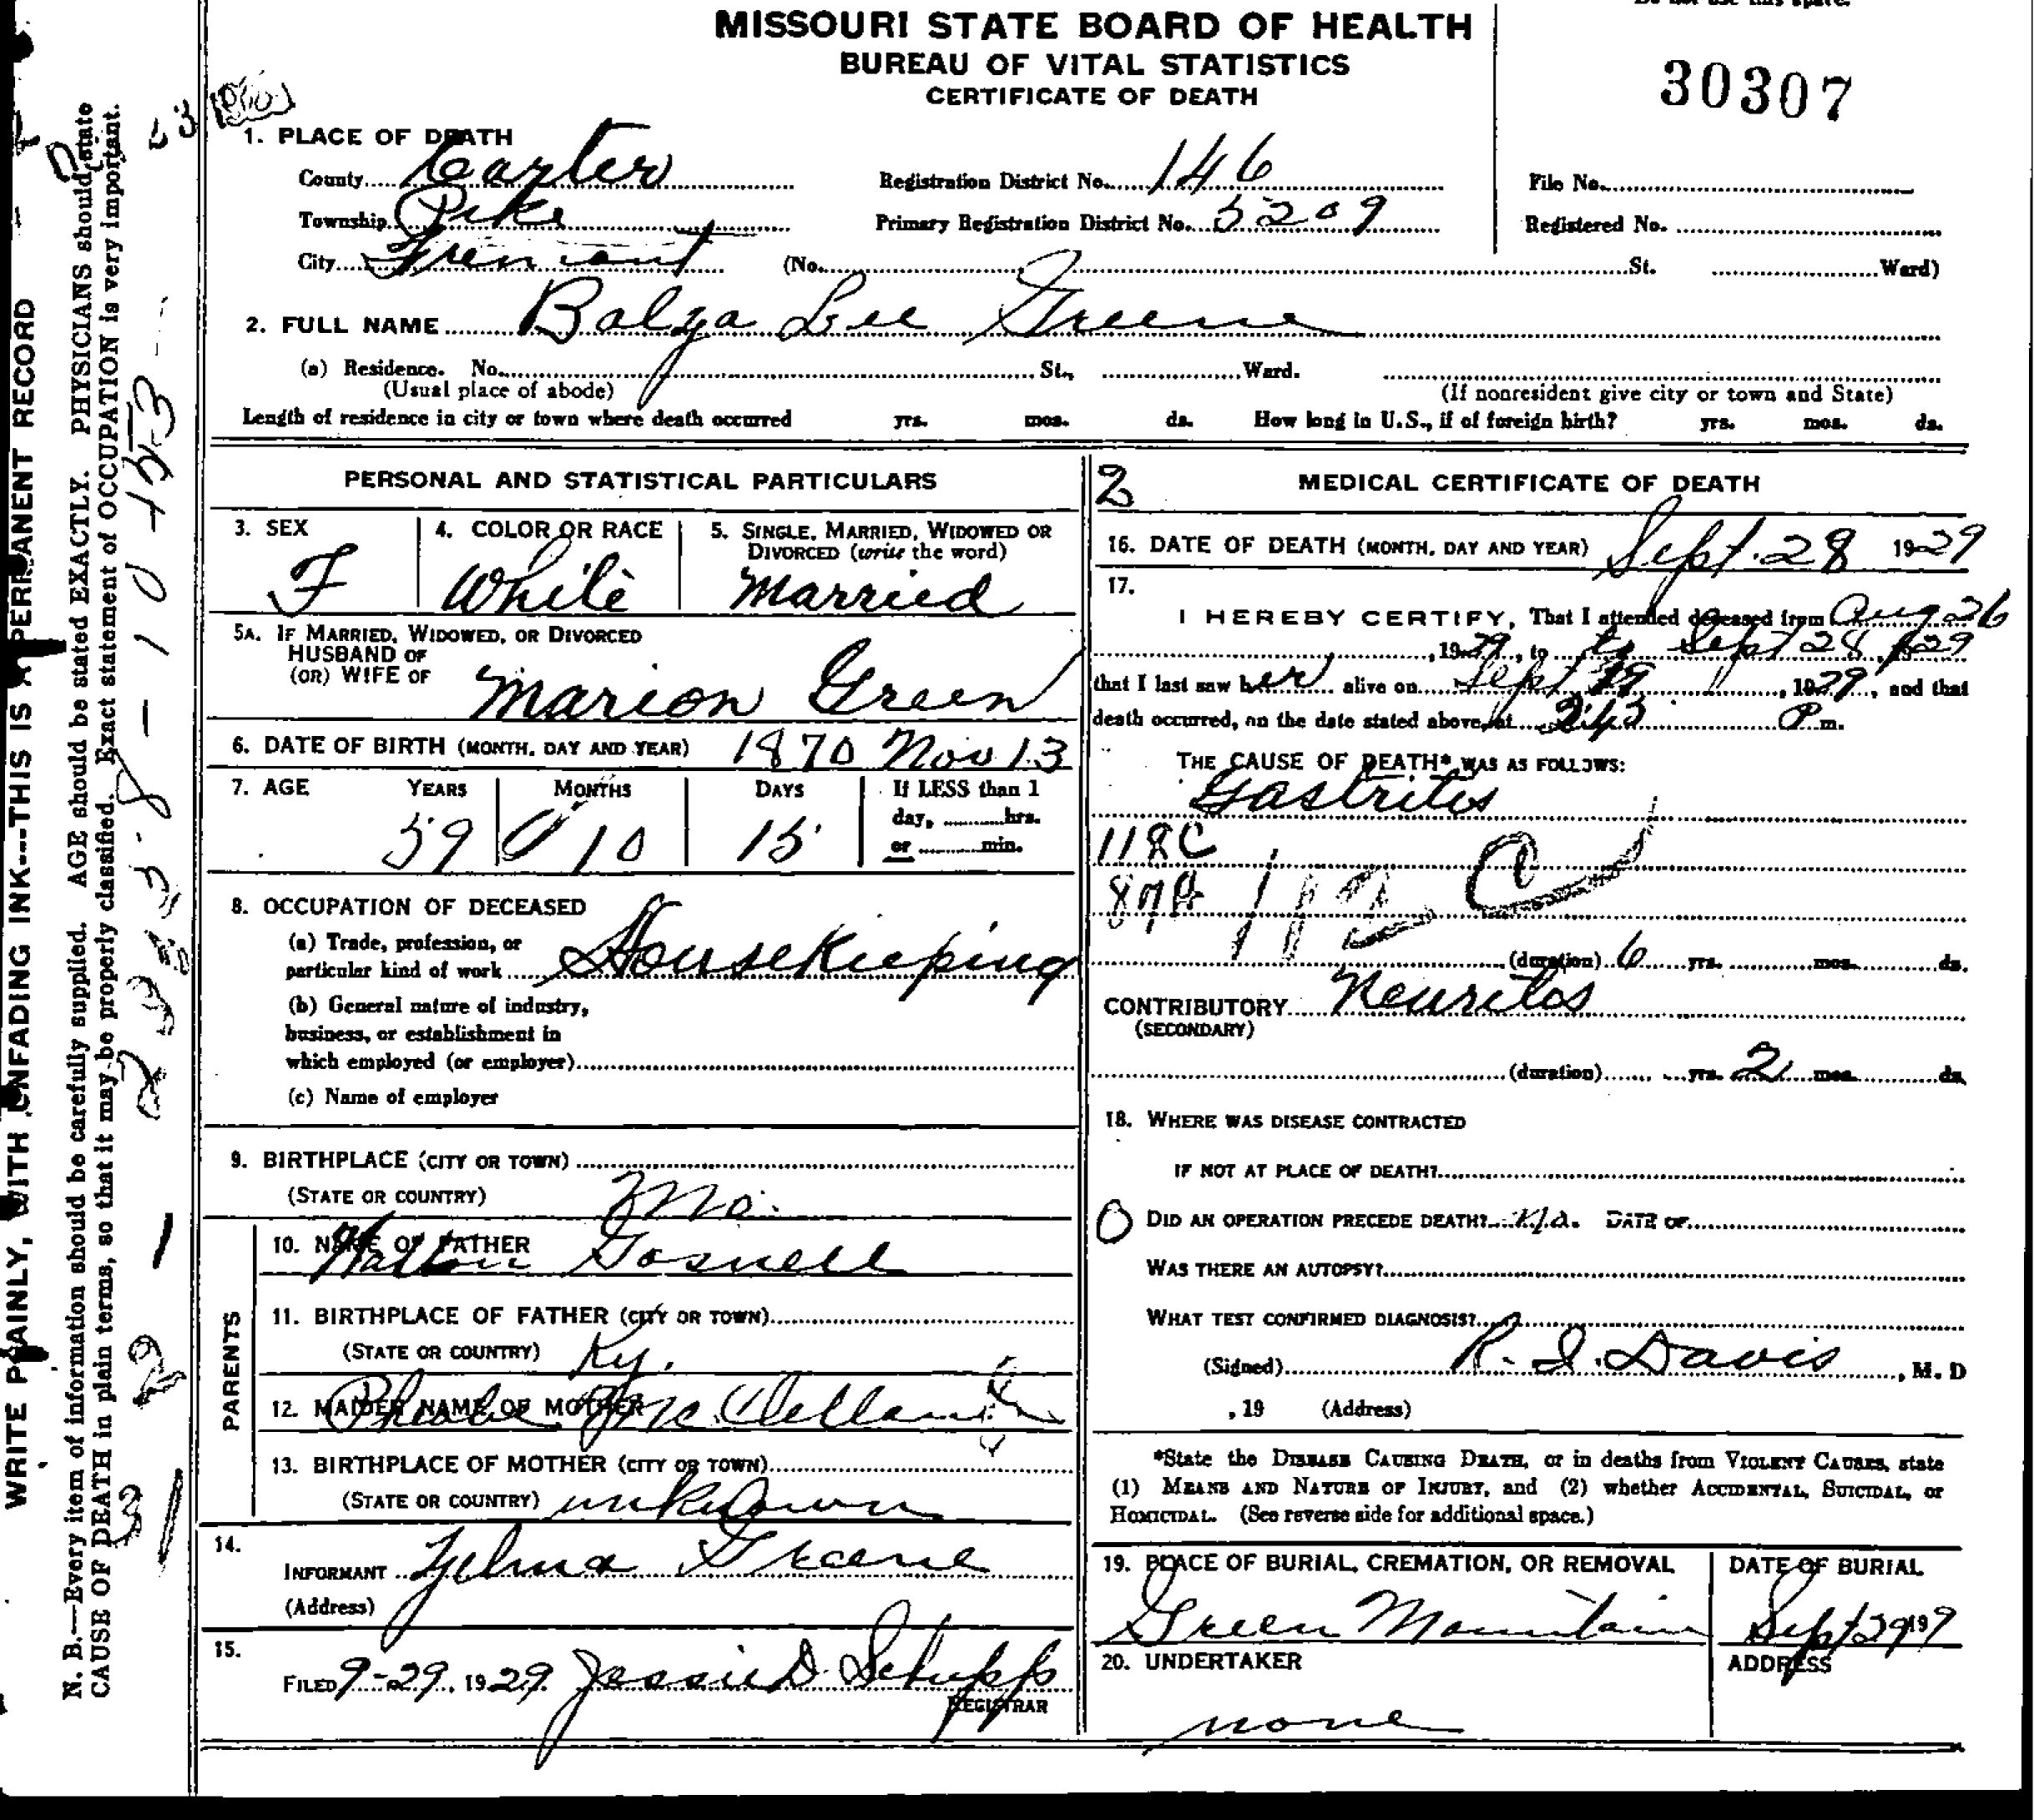 MISSOURI STATE BOARD OF HEALTH
BUREAU OF VITAL STATISTICS
CERTIFICATE OF DEATH
30307
1. PLACE OF DEATH
County Carter Registration District No. 146 File No.
Township Pike Primary Registration District No. 5209 Registered No.
City Fremont (No. St. Ward)
2. FULL NAME Balza Lee Greene
(a) Residence. No. St., Ward.
(Usual place of abode) (If nonresident give city or town and State)
Length of residence in city or town where death occurred yrs. mos. ds. How long in U.S., if of foreign birth? yrs. mos. ds.
PERSONAL AND STATISTICAL PARTICULARS
3. SEX 4. COLOR OR RACE 5. SINGLE, MARRIED, WIDOWED OR
DIVORCED (write the word)
F White Married
5A. IF MARRIED, WIDOWED, OR DIVORCED
HUSBAND OF
(OR) WIFE OF Marion Green
6. DATE OF BIRTH (MONTH, DAY AND YEAR) 1870 Nov 13
7. AGE YEARS MONTHS DAYS If LESS than 1
day, hrs.
59 10 15 or min.
8. OCCUPATION OF DECEASED
(a) Trade, profession, or
particular kind of work Housekeeping
(b) General nature of industry,
business, or establishment in
which employed (or employer)
(c) Name of employer
9. BIRTHPLACE (CITY OR TOWN)
(STATE OR COUNTRY) Mo.
PARENTS
10. NAME OF FATHER Gosnell
11. BIRTHPLACE OF FATHER (CITY OR TOWN)
(STATE OR COUNTRY) Ky.
12. MAIDEN NAME OF MOTHER Pheobe
13. BIRTHPLACE OF MOTHER (CITY OR TOWN)
(STATE OR COUNTRY) unknown
14.
INFORMANT Zelma Greene
(Address)
15.
FILED 9-29, 1929 Jessie D. Stupp
REGISTRAR
2 MEDICAL CERTIFICATE OF DEATH
16. DATE OF DEATH (MONTH, DAY AND YEAR) Sept. 28 1929
17.
I HEREBY CERTIFY, That I attended deceased from Aug 26
, 1929, to to Sept 28, 1929
that I last saw her alive on Sept , 1929, and that
death occurred, on the date stated above, at P.m.
THE CAUSE OF DEATH* WAS AS FOLLOWS:
Gastritis
118C
87A 112 C
(duration) 6 yrs. mos. ds.
CONTRIBUTORY Neuritis
(SECONDARY)
(duration) yrs. 2 mos. ds.
18. WHERE WAS DISEASE CONTRACTED
IF NOT AT PLACE OF DEATH?
0 DID AN OPERATION PRECEDE DEATH? no. DATE OF
WAS THERE AN AUTOPSY?
WHAT TEST CONFIRMED DIAGNOSIS?
(Signed) R. I. Davis, M. D
, 19 (Address)
*State the DISEASE CAUSING DEATH, or in deaths from VIOLENT CAUSES, state
(1) MEANS AND NATURE OF INJURY, and (2) whether ACCIDENTAL, SUICIDAL, or
HOMICIDAL. (See reverse side for additional space.)
19. PLACE OF BURIAL, CREMATION, OR REMOVAL DATE OF BURIAL
Green Mountain Sept 29
20. UNDERTAKER ADDRESS
none
WRITE PLAINLY, WITH UNFADING INK---THIS IS A PERMANENT RECORD
N. B.—Every item of information should be carefully supplied. AGE should be stated EXACTLY. PHYSICIANS should state
CAUSE OF DEATH in plain terms, so that it may be properly classified. Exact statement of OCCUPATION is very important.